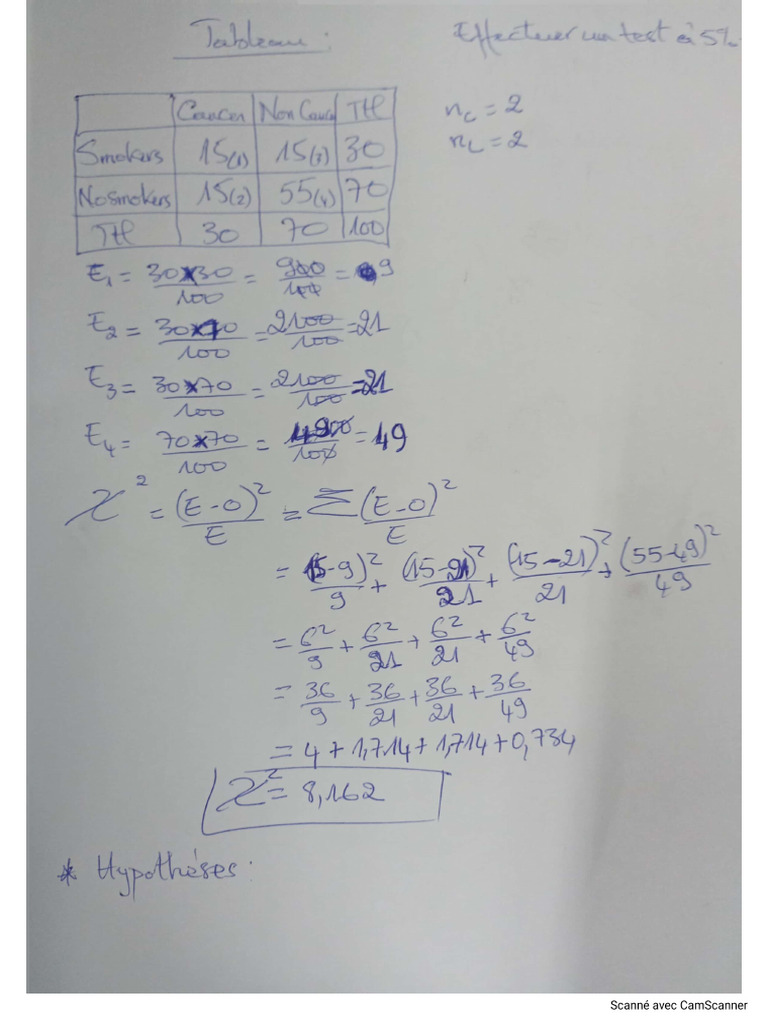 Tableau : Effectuer un test à 5%
Cancer Non Cancer Ttl
Smokers 15(1) 15(3) 30
Nosmokers 15(2) 55(4) 70
Ttl 30 70 100
n_c = 2
n_L = 2
E₁ = 30x30/100 = 900/100 = 9
E₂ = 30x70/100 = 2100/100 = 21
E₃ = 30x70/100 = 2100/100 = 21
E₄ = 70x70/100 = 4900/100 = 49
χ² = (E-O)²/E = Σ(E-O)²/E
= (15-9)²/9 + (15-21)²/21 + (15-21)²/21 + (55-49)²/49
= 6²/9 + 6²/21 + 6²/21 + 6²/49
= 36/9 + 36/21 + 36/21 + 36/49
= 4 + 1,714 + 1,714 + 0,734
χ² = 8,162
* Hypothéses :
Scanné avec CamScanner